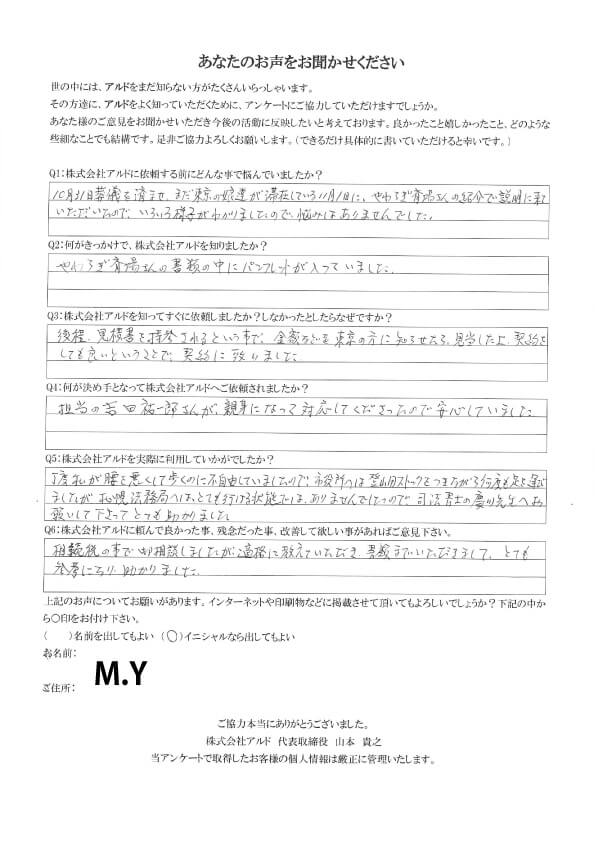 あなたのお声をお聞かせください
世の中には、アルドをまだ知らない方がたくさんいらっしゃいます。
その方達に、アルドをよく知っていただくために、アンケートにご協力していただけますでしょうか。
あなた様のご意見をお聞かせいただき今後の活動に反映したいと考えております。良かったこと嬉しかったこと、どのような
些細なことでも結構です。是非ご協力よろしくお願いします。(できるだけ具体的に書いていただけると幸いです。)
Q1:株式会社アルドに依頼する前にどんな事で悩んでいましたか?
10月31日葬儀を済ませ、まだ東京の娘達が滞在している11月1日に、やわらぎ斎場さんの紹介で説明に来て
いただいたので、いろいろ様子がわかりましたので、悩みはありませんでした。
Q2:何がきっかけで、株式会社アルドを知りましたか?
やわらぎ斎場さんの書類の中にパンフレットが入っていました。
Q3:株式会社アルドを知ってすぐに依頼しましたか?しなかったとしたらなぜですか?
後程、見積書を持参されるという事で、金額などを東京の方に知らせたら、見当した上、契約を
しても良いということで、契約に致しました。
Q4:何が決め手となって株式会社アルドへご依頼されましたか?
担当の吉田祐一郎さんが、親身になって対応してくださったので安心していました。
Q5:株式会社アルドを実際に利用していかがでしたか?
丁度私が腰を悪くして歩くのに不自由していましたので、市役所へは登山用ストックをつきながら何度も足を運び
ましたが札幌法務局へは、とても行ける状態ではありませんでしたので、司法書士の慶川先生へお
願いして下さってとても助かりました。
Q6:株式会社アルドに頼んで良かった事、残念だった事、改善して欲しい事があればご意見下さい。
相続税の事で御相談しましたが、適格に教えていただき、書類までいただきまして、とても
参考になり助かりました。
上記のお声についてお願いがあります。インターネットや印刷物などに掲載させて頂いてもよろしいでしょうか?下記の中か
ら〇印をお付け下さい。
( )名前を出してもよい (〇)イニシャルなら出してもよい
お名前:
M.Y
ご住所:
ご協力本当にありがとうございました。
株式会社アルド 代表取締役 山本 貴之
当アンケートで取得したお客様の個人情報は厳正に管理いたします。